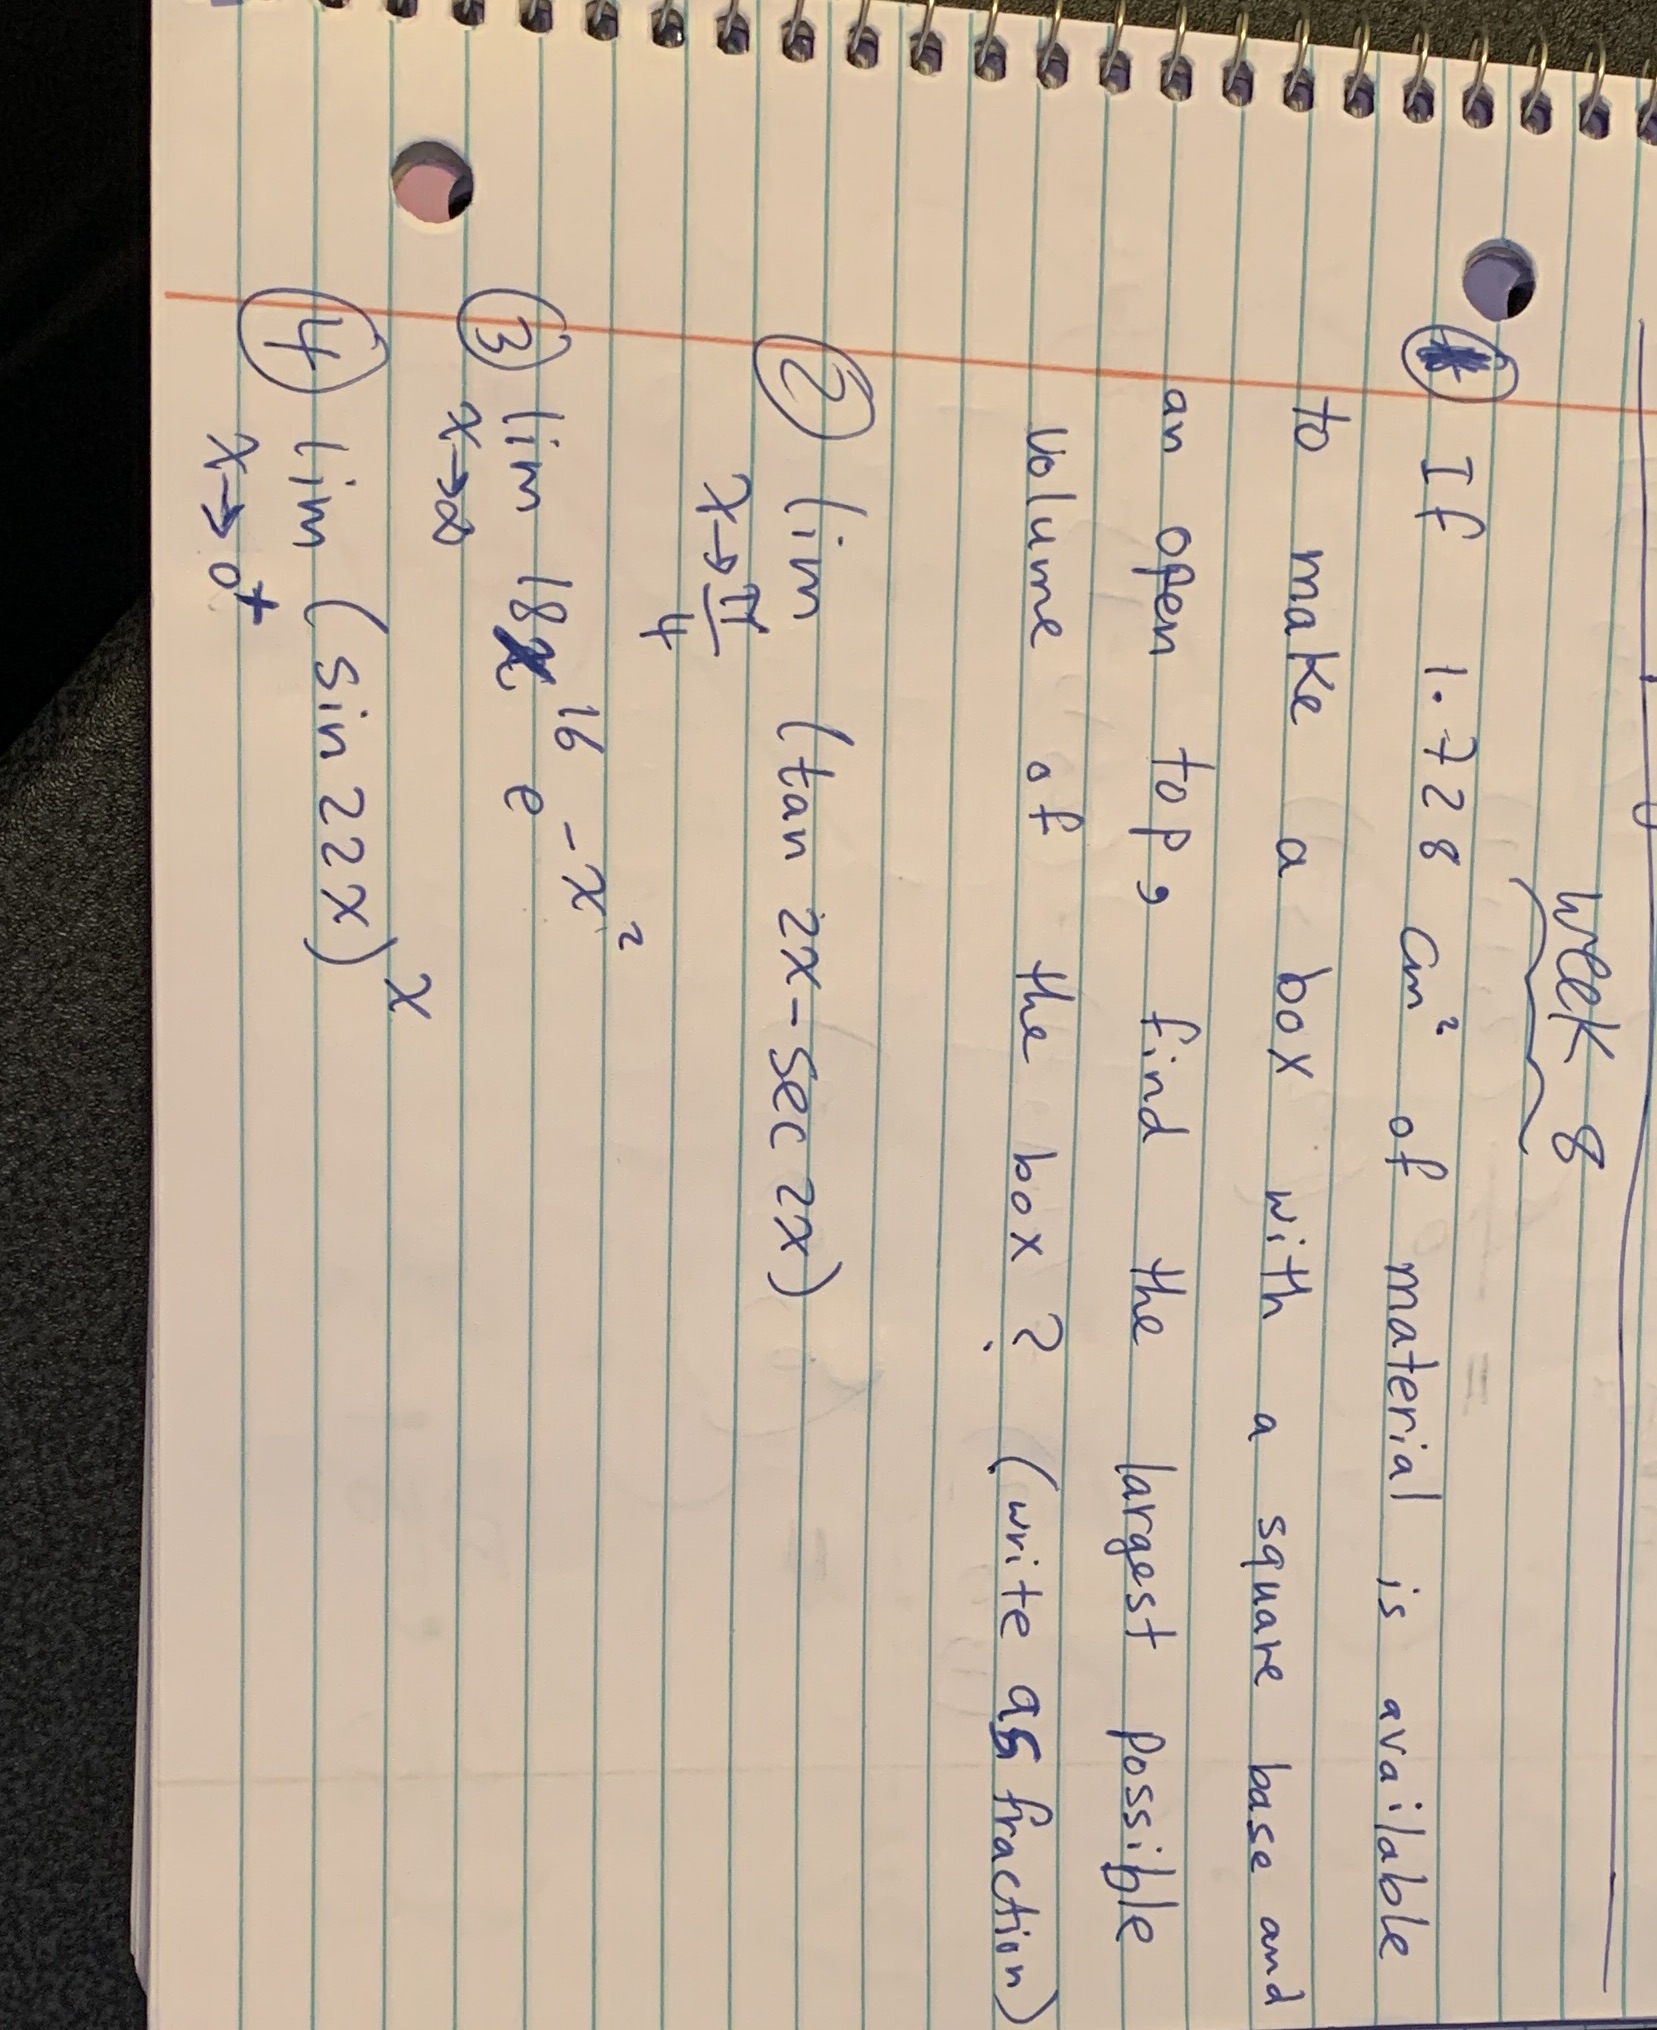 Week 8
If 1.728 cm² of material is available
to make a box with a square base and
an open top, find the largest possible
volume of the box? (write as fraction)
② lim (tan 2x - sec 2x)
x→π/4
③ lim 18x¹⁶ e^-x²
x→∞
④ lim (sin 22x)^x
x→0⁺